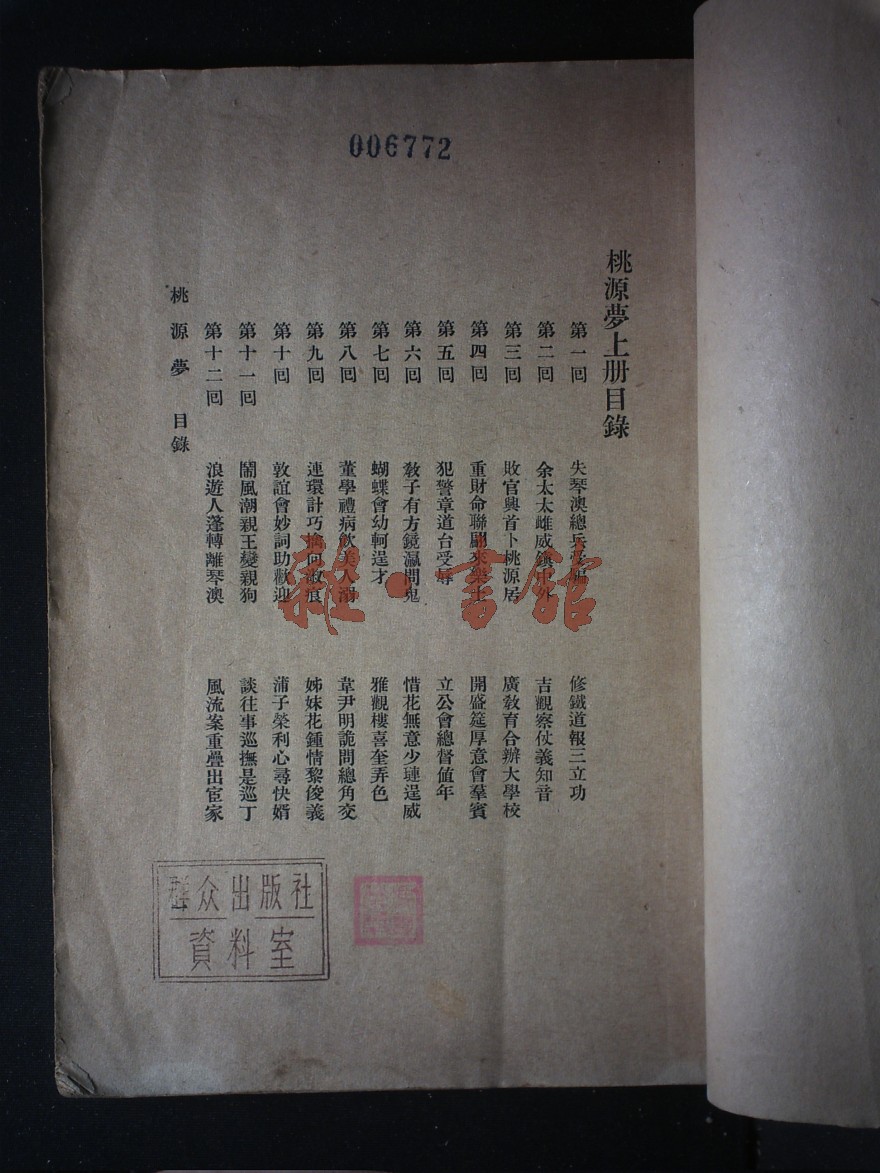 006772
桃源夢上册目錄
第一回 失琴澳總兵受騙 修鐵道報三立功
第二回 余太太雌威鎮中外 吉觀察仗義知音
第三回 敗官興首卜桃源居 廣敎育合辦大學校
第四回 重財命聯翩來樂土 開盛筵厚意會羣賓
第五回 犯警章道台受辱 立公會總督値年
第六回 敎子有方鏡瀛問鬼 惜花無意少璉逞威
第七回 蝴蝶會幼軻逞才 雅觀樓喜奎弄色
第八回 董學禮病飮美人溺 韋尹明詭問總角交
第九回 連環計巧擒何淑痕 姊妹花鍾情黎俊義
第十回 敦誼會妙詞助歡迎 蒲子榮利心尋快婿
第十一回 鬧風潮親王變親狗 談往事巡撫是巡丁
第十二回 浪遊人蓬轉離琴澳 風流案重疊出宦家
桃源夢 目錄
雜·書館
群众出版社
資料室